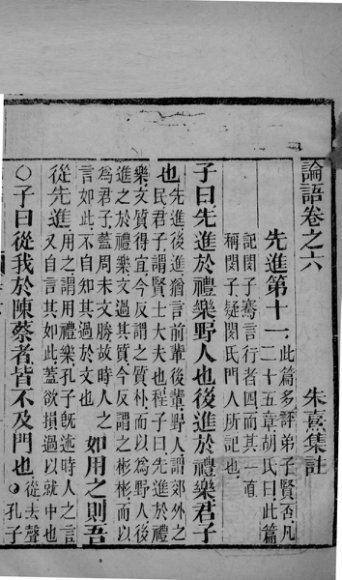 論語卷之六
朱熹集註
先進第十一
此篇多評弟子賢否凡
二十五章胡氏曰此篇
記閔子騫言行者四而其一直
稱閔子疑閔氏門人所記也
子曰先進於禮樂野人也後進於禮樂君子
也
先進後進猶言前輩後輩野人謂郊外之
民君子謂賢士大夫也程子曰先進於禮
樂文質得宜今反謂之質朴而以為野人後
進之於禮樂文過其質今反謂之彬彬而以
為君子蓋周末文勝故時人之
言如此不自知其過於文也
如用之則吾
從先進
用之謂用禮樂孔子既述時人之言
又自言其如此蓋欲損過以就中也
○子曰從我於陳蔡者皆不及門也
從去聲
○孔子